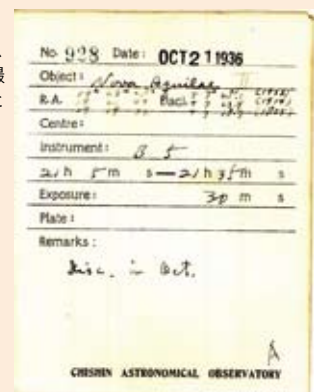 No. 928 Date: OCT 21 1936
Object: Nova Aquilae
R.A. Decl.
Centre:
Instrument: B 5
21 h 5 m s — 21 h 35 m s
Exposure: 30 m s
Plate:
Remarks:
Disc. in Oct.
A
CHISHIN ASTRONOMICAL OBSERVATORY